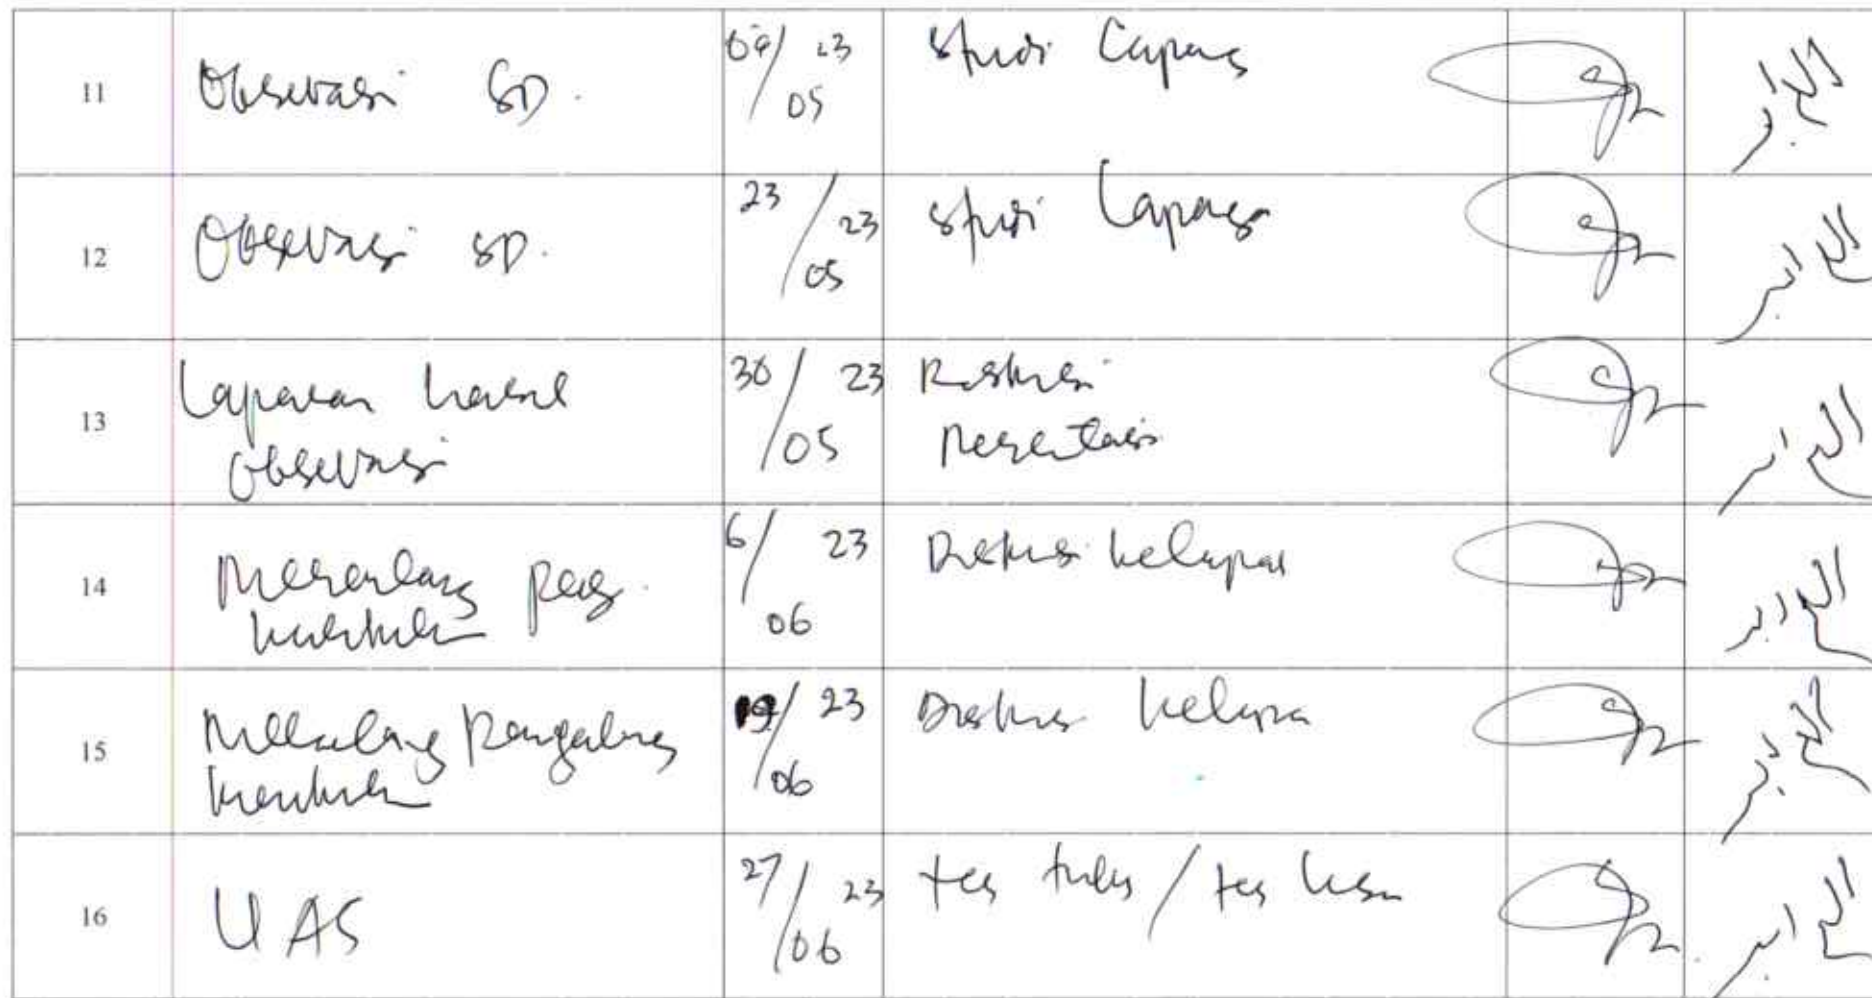 11 Observasi SD. 09/05 23 Studi Lapang
12 Observasi SD. 23/05 23 Studi Lapang
13 Laporan hasil 30/05 23 Diskusi
Observasi Presentasi
14 Merancang peng. 6/06 23 Diskusi kelompok
kurikulum
15 Merancang Pengembang 06 23 Diskusi kelompok
kurikulum
16 UAS 27/06 23 tes tulis / tes lisan